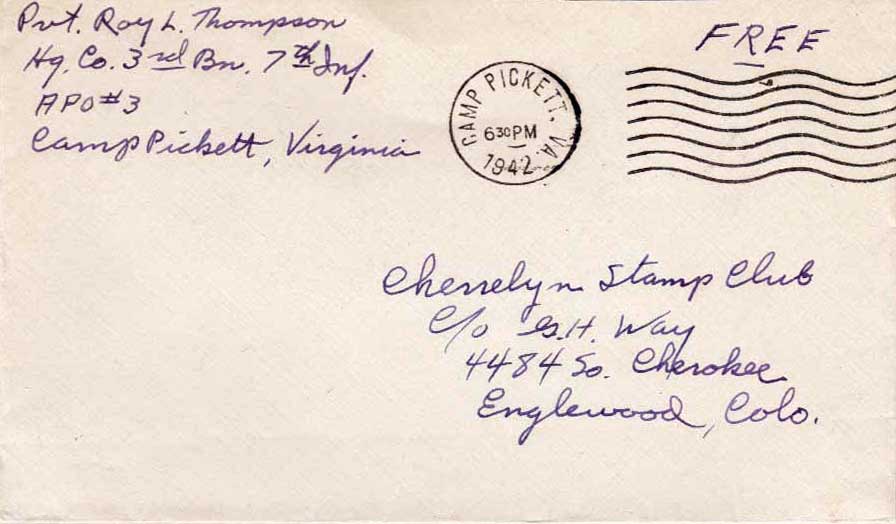 Pvt. Roy L. Thompson
Hq. Co. 3rd Bn. 7th Inf.
APO #3
Camp Pickett, Virginia
CAMP PICKETT, VA.
630 PM
1942
FREE
Cherrelyn Stamp Club
C/o G.H. Way
4484 So. Cherokee
Englewood, Colo.